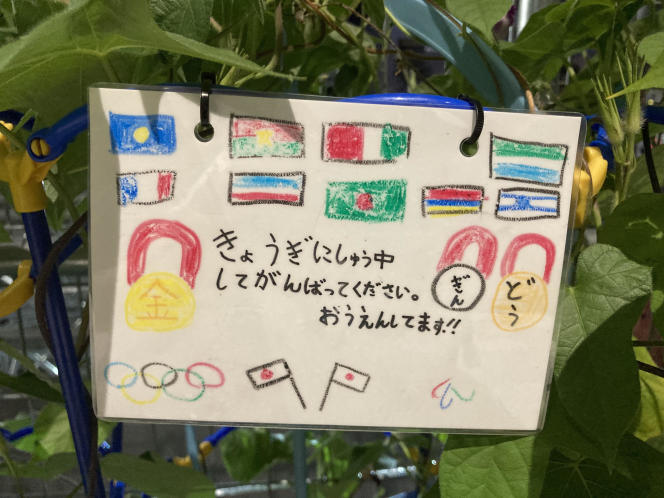 きょうぎにしゅう中
してがんばってください。
おうえんしてます!!
金
ぎん
どう